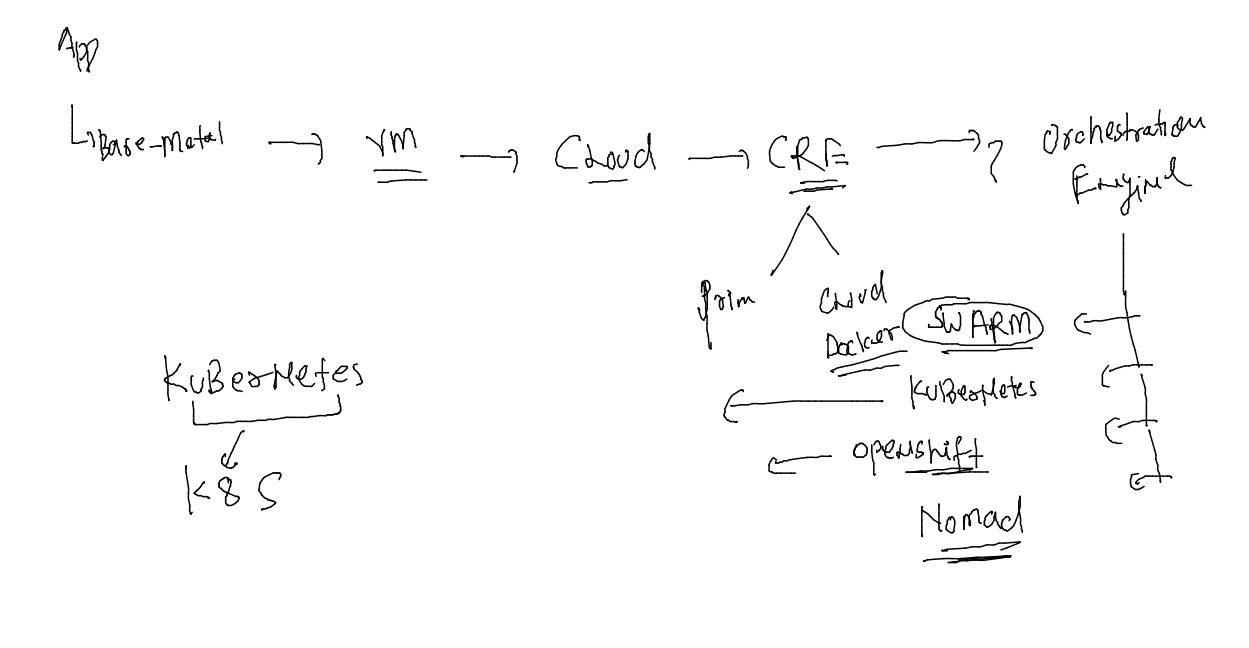 App
Base-Metal
VM
Cloud
CRE
?
Orchestration
Engine
Prim
Cloud
Docker
SWARM
KuBerNetes
openshift
Nomad
KuBerNetes
K8S